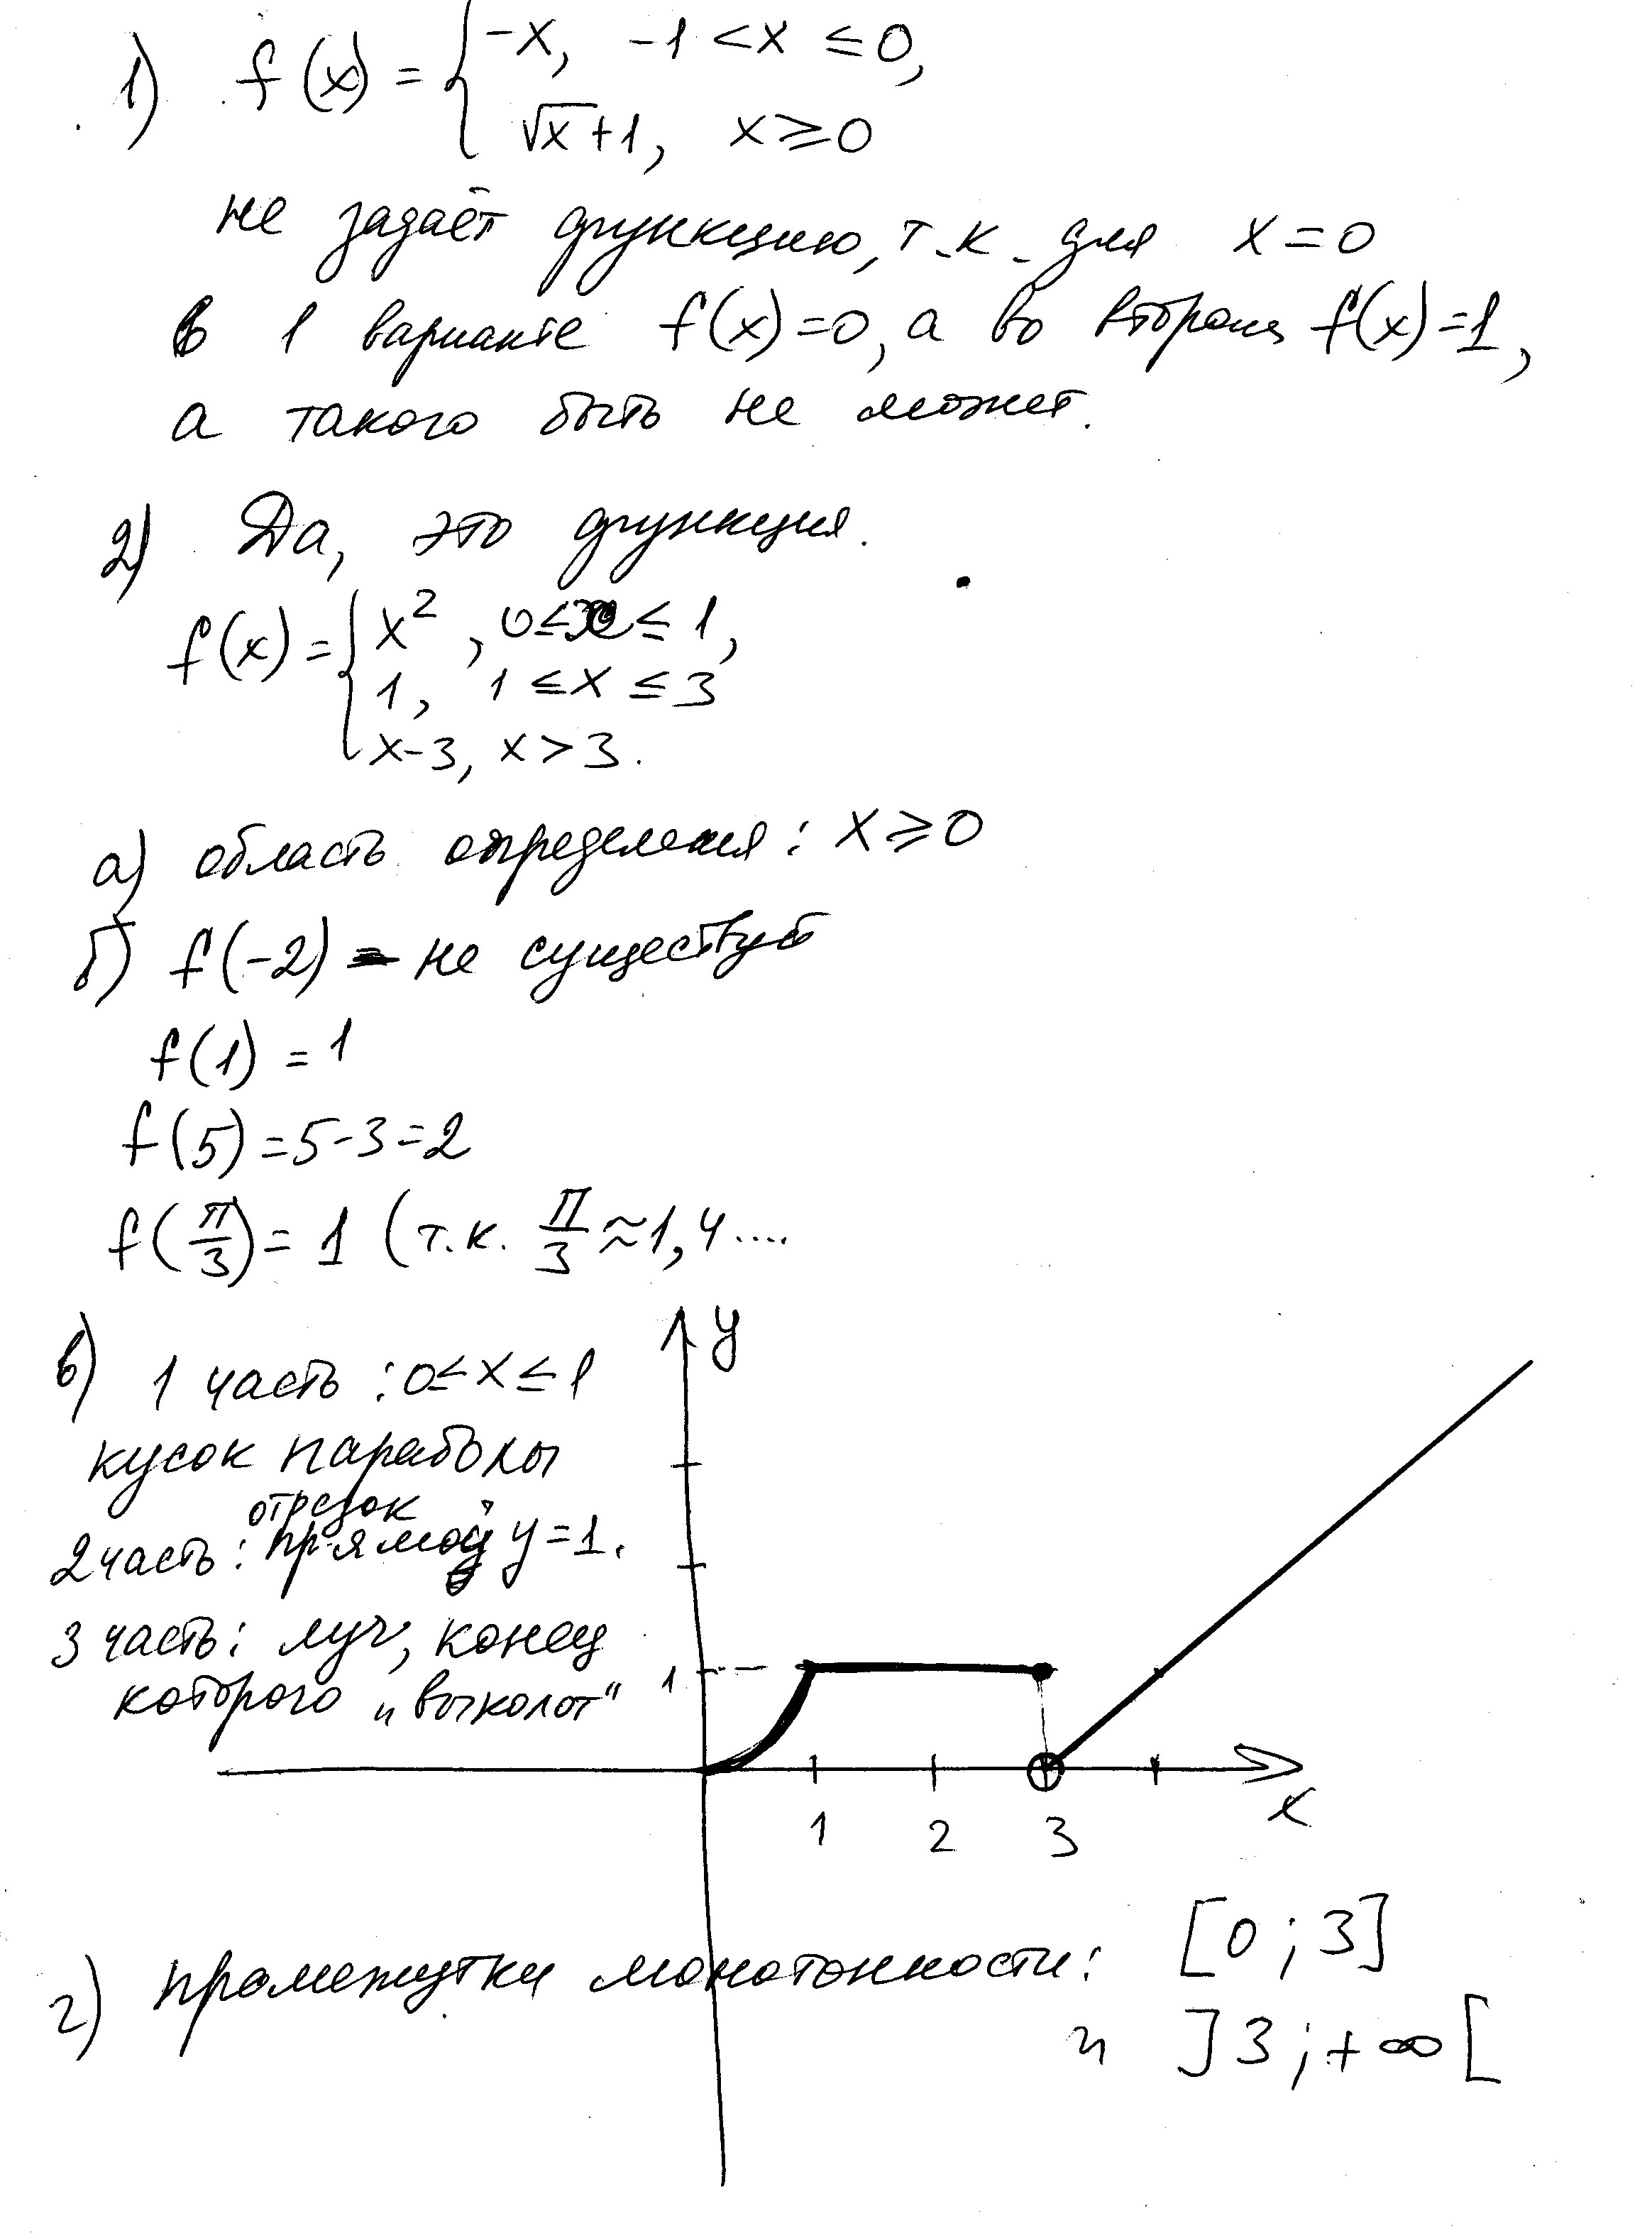 1) f(x) = { -x, -1 < x ≤ 0,
√x+1, x ≥ 0
не задаёт функцию, т.к. для x = 0
в 1 варианте f(x)=0, а во втором f(x)=1,
а такого быть не может.
2) Да, это функция.
f(x) = { x², 0 ≤ x ≤ 1,
1, 1 ≤ x ≤ 3
x-3, x > 3.
а) область определения: x ≥ 0
б) f(-2) - не существует
f(1) = 1
f(5) = 5-3 = 2
f(π/3) = 1 (т.к. π/3 ≈ 1,4....
в) 1 часть: 0 ≤ x ≤ 1
кусок параболы
отрезок
2 часть: прямой y=1.
3 часть: луч, конец
которого „выколот“
y
1
1 2 3
x
г) промежутки монотонности: [0; 3]
и ]3; +∞[